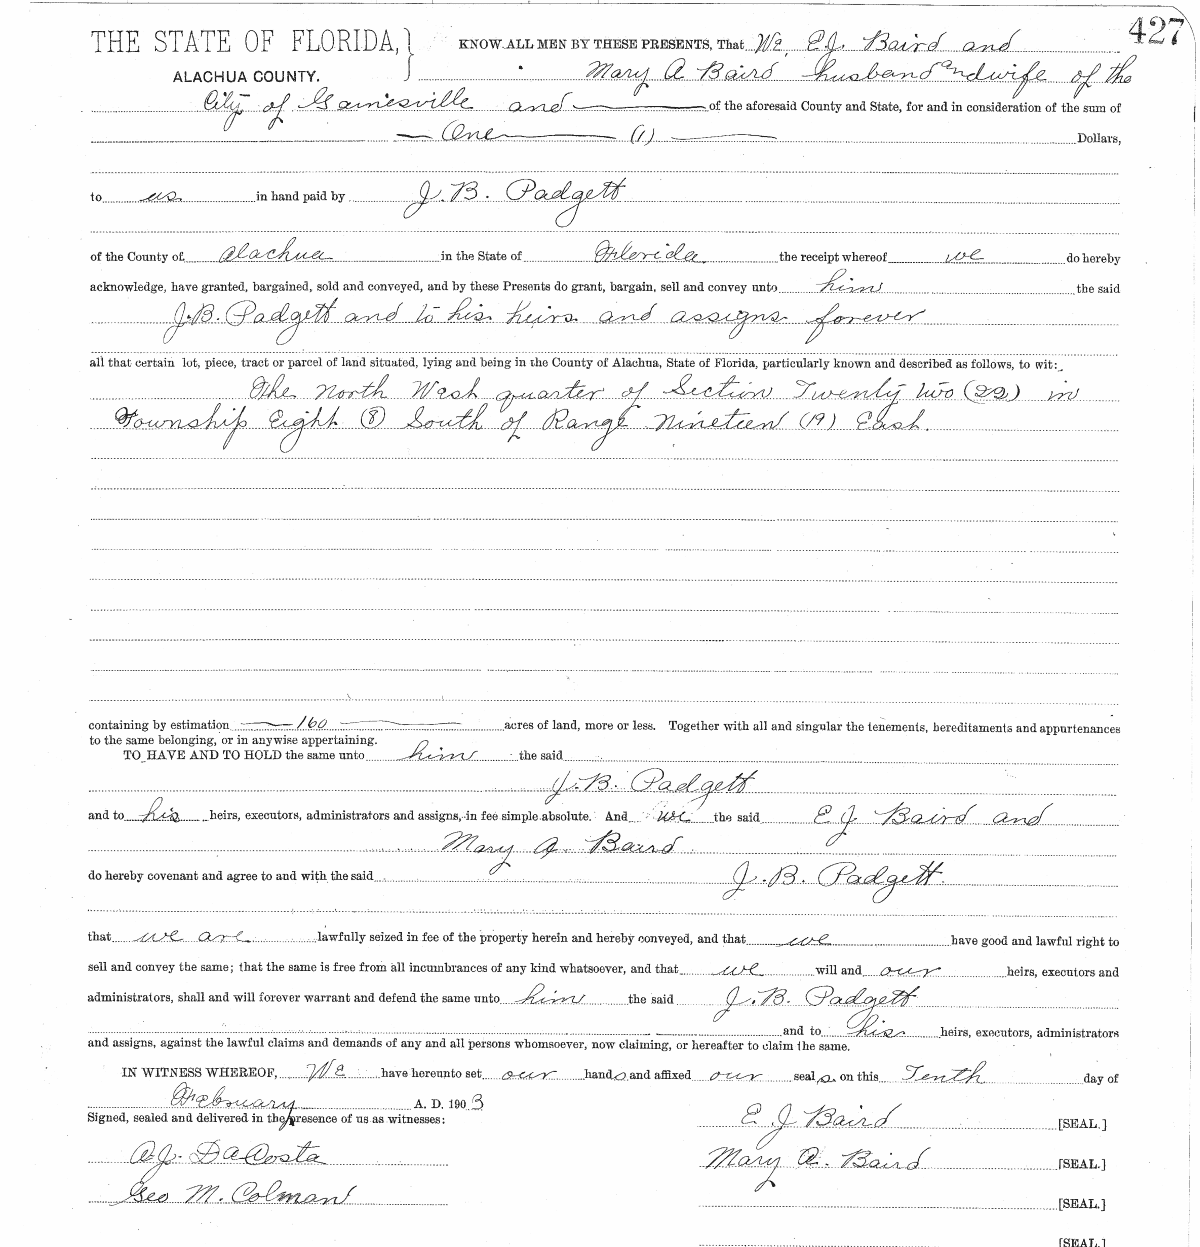 427
THE STATE OF FLORIDA, } KNOW ALL MEN BY THESE PRESENTS, That We, E.J. Baird and
ALACHUA COUNTY. Mary A Baird husband and wife of the
City of Gainesville and of the aforesaid County and State, for and in consideration of the sum of
One (1) Dollars,
to us in hand paid by J. B. Padgett
of the County of Alachua in the State of Florida the receipt whereof we do hereby
acknowledge, have granted, bargained, sold and conveyed, and by these Presents do grant, bargain, sell and convey unto him the said
J.B. Padgett and to his heirs and assigns forever
all that certain lot, piece, tract or parcel of land situated, lying and being in the County of Alachua, State of Florida, particularly known and described as follows, to wit:
The North West quarter of Section Twenty two (22) in
Township Eight (8) South of Range Nineteen (19) East.
containing by estimation 160 acres of land, more or less. Together with all and singular the tenements, hereditaments and appurtenances
to the same belonging, or in anywise appertaining.
TO HAVE AND TO HOLD the same unto him the said
J. B. Padgett
and to his heirs, executors, administrators and assigns, in fee simple absolute. And we the said E J Baird and
Mary A. Baird
do hereby covenant and agree to and with the said J. B. Padgett.
that we are lawfully seized in fee of the property herein and hereby conveyed, and that we have good and lawful right to
sell and convey the same; that the same is free from all incumbrances of any kind whatsoever, and that we will and our heirs, executors and
administrators, shall and will forever warrant and defend the same unto him the said J. B. Padgett
and to his heirs, executors, administrators
and assigns, against the lawful claims and demands of any and all persons whomsoever, now claiming, or hereafter to claim the same.
IN WITNESS WHEREOF, We have hereunto set our hands and affixed our seals on this Tenth day of
February A. D. 1903
Signed, sealed and delivered in the presence of us as witnesses:
E J Baird [SEAL.]
A.J. DaCosta
Mary A. Baird [SEAL.]
Geo M. Colman
[SEAL.]
[SEAL.]